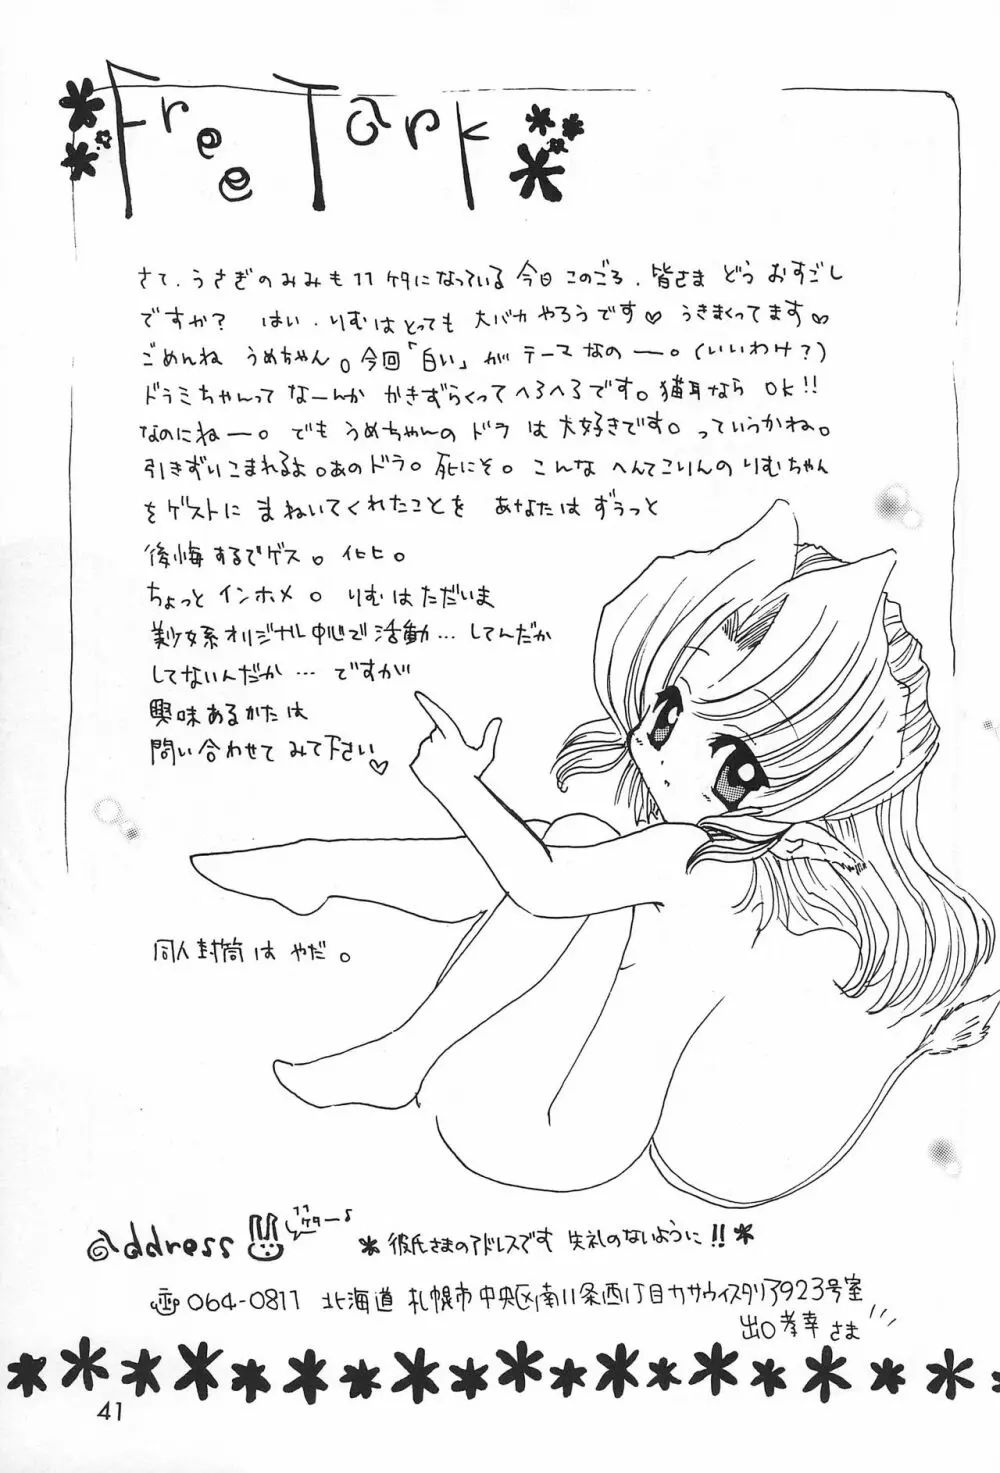 Free Tark
さて、うさぎのみみも11ケタになっている今日このごろ、皆さま どう おすごし
ですか? はい、りむはとっても 大バカ やろうです♡ うきまくってます♡
ごめんね うめちゃん。今回「白い」が テーマ なのー。(いいわけ?)
ドラミちゃんって なーんか かきずらくって へろへろです。猫耳なら OK!!
なのにねー。でも うめちゃんの ドラ は 大好きです。っていうかね。
引きずいこまれるよ。あのドラ。死にそ。こんな へんてこりんの りむちゃん
を ゲストに まねいてくれたことを あなたは ずうっと
後悔するでゲス。イヒヒ。
ちょっと インホメ。 りむは ただいま
美少女系オリジナル中心で活動…してんだか
してないんだか…ですが
興味あるかたは
問い合わせて みて下さい♡
同人封筒は やだ。
@ddress
11ケター
*彼氏さまのアドレスです 失礼のないように!!*
〒064-0811 北海道 札幌市 中央区南11条西1丁目カサウィスタリア923号室
出口孝幸さま
41